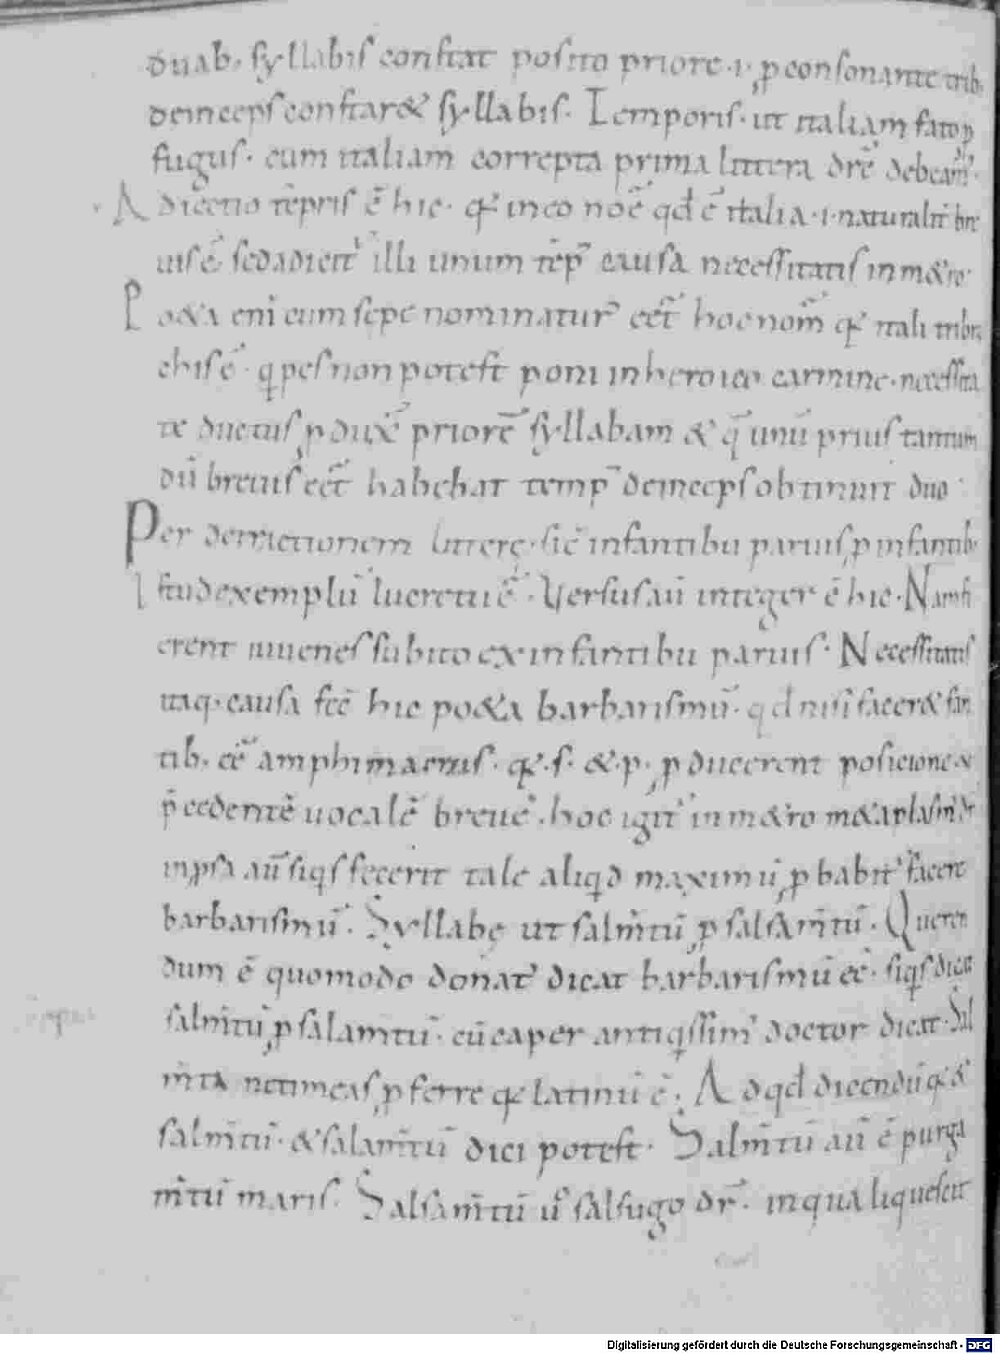 duab. syllabis constat posito priore .i. p̱ consonante trib.
deinceps constar& syllabis. Temporis. ut italiam fato p̱
fugus. cum italiam correpta prima littera dr̄e debeam̄.
Adiectio tēpris ē hic. q̨ in eo noē qđ ē italia .i. naturalit̄ bre
uis ē. sed adicit' illi unum tēp' causa necessitatis in m&ro.
Po&a eni cum sepe nominatur' eēt hoc nom̄ q̨ itali tribra
chis ē. q pes non potest poni in heroico carmine. necessita
te ductus p̱duxē priorē syllabam & q̄ unū prius tantum
dū breuis eēt habebat temp' deinceps obtinuit duo.
Per detrectionem litterę. sic̄ infantibu paruis, p̱ infantib.
Istud exemplū lucretii ē. Versus aū integer ē hic. Nam fi
erent iuuenes subito ex infantibu paruis. Necessitatis
itaq. causa fec̄ hic po&a barbarismū. qđ nisi facer& fan
tib. eē amphimacrus. q̨ .s. & .p. p̱ducerent posicione &
p̄cedentē uocalē breuē. hoc igit' in m&ro m&aplasm' dr̄
in p̱sa aū siqs fecerit tale aliqd maximū p̱babit' facere
barbarismū. Syllabę ut salm̄tū, p̱ salsam̄tū. Queren
dum ē quomodo donat' dicat barbarismū eē. siqs dicat
salm̄tū, p̱ salam̄tū. cū caper antiqssim' doctor dicat. Sal
m̄ta ne timeas p̱ferre q̨ latinū ē. Ad qđ dicendū q̨ &
salm̄tū. & salam̄tū dici potest. Salm̄tū aū ē purga
m̄tū maris. Salsam̄tū u' salsugo dr̄. in qua liquescit
Digitalisierung gefördert durch die Deutsche Forschungsgemeinschaft - DFG